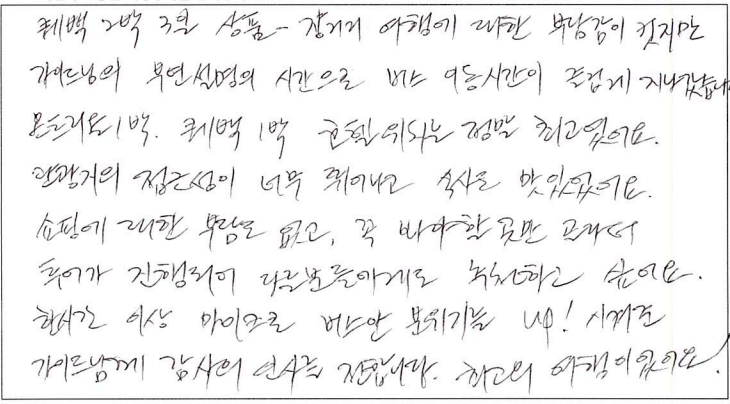 퀘백 2박 3일 상품 - 장거리 여행에 대한 부담감이 컸지만
가이드님의 부연설명의 시간으로 버스 이동시간이 즐겁게 지나갔습니다
몬트리올 1박. 퀘백 1박 로 정말 최고였어요.
관광거의 접근성이 너무 뛰어나고 식사도 맛있었어요.
쇼핑에 대한 부담도 없고, 꼭 봐야할 곳만 골라서
투어가 진행되어 다른분들에게도 추천하고 싶어요.
한시간 이상 마이크로 버스안 분위기를 up! 시켜준
가이드님께 감사의 인사를 전합니다. 최고의 여행이었어요!